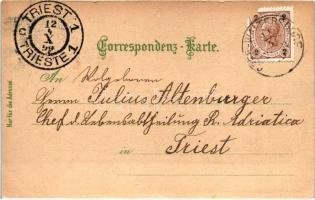 TRIEST 1
12
X
TRIESTE 1
Correspondenz-Karte.
An
Herrn Julius Altenburger
Chef d. Lebensabtheilung R. Adriatica
in
Triest
Nur für die Adresse.